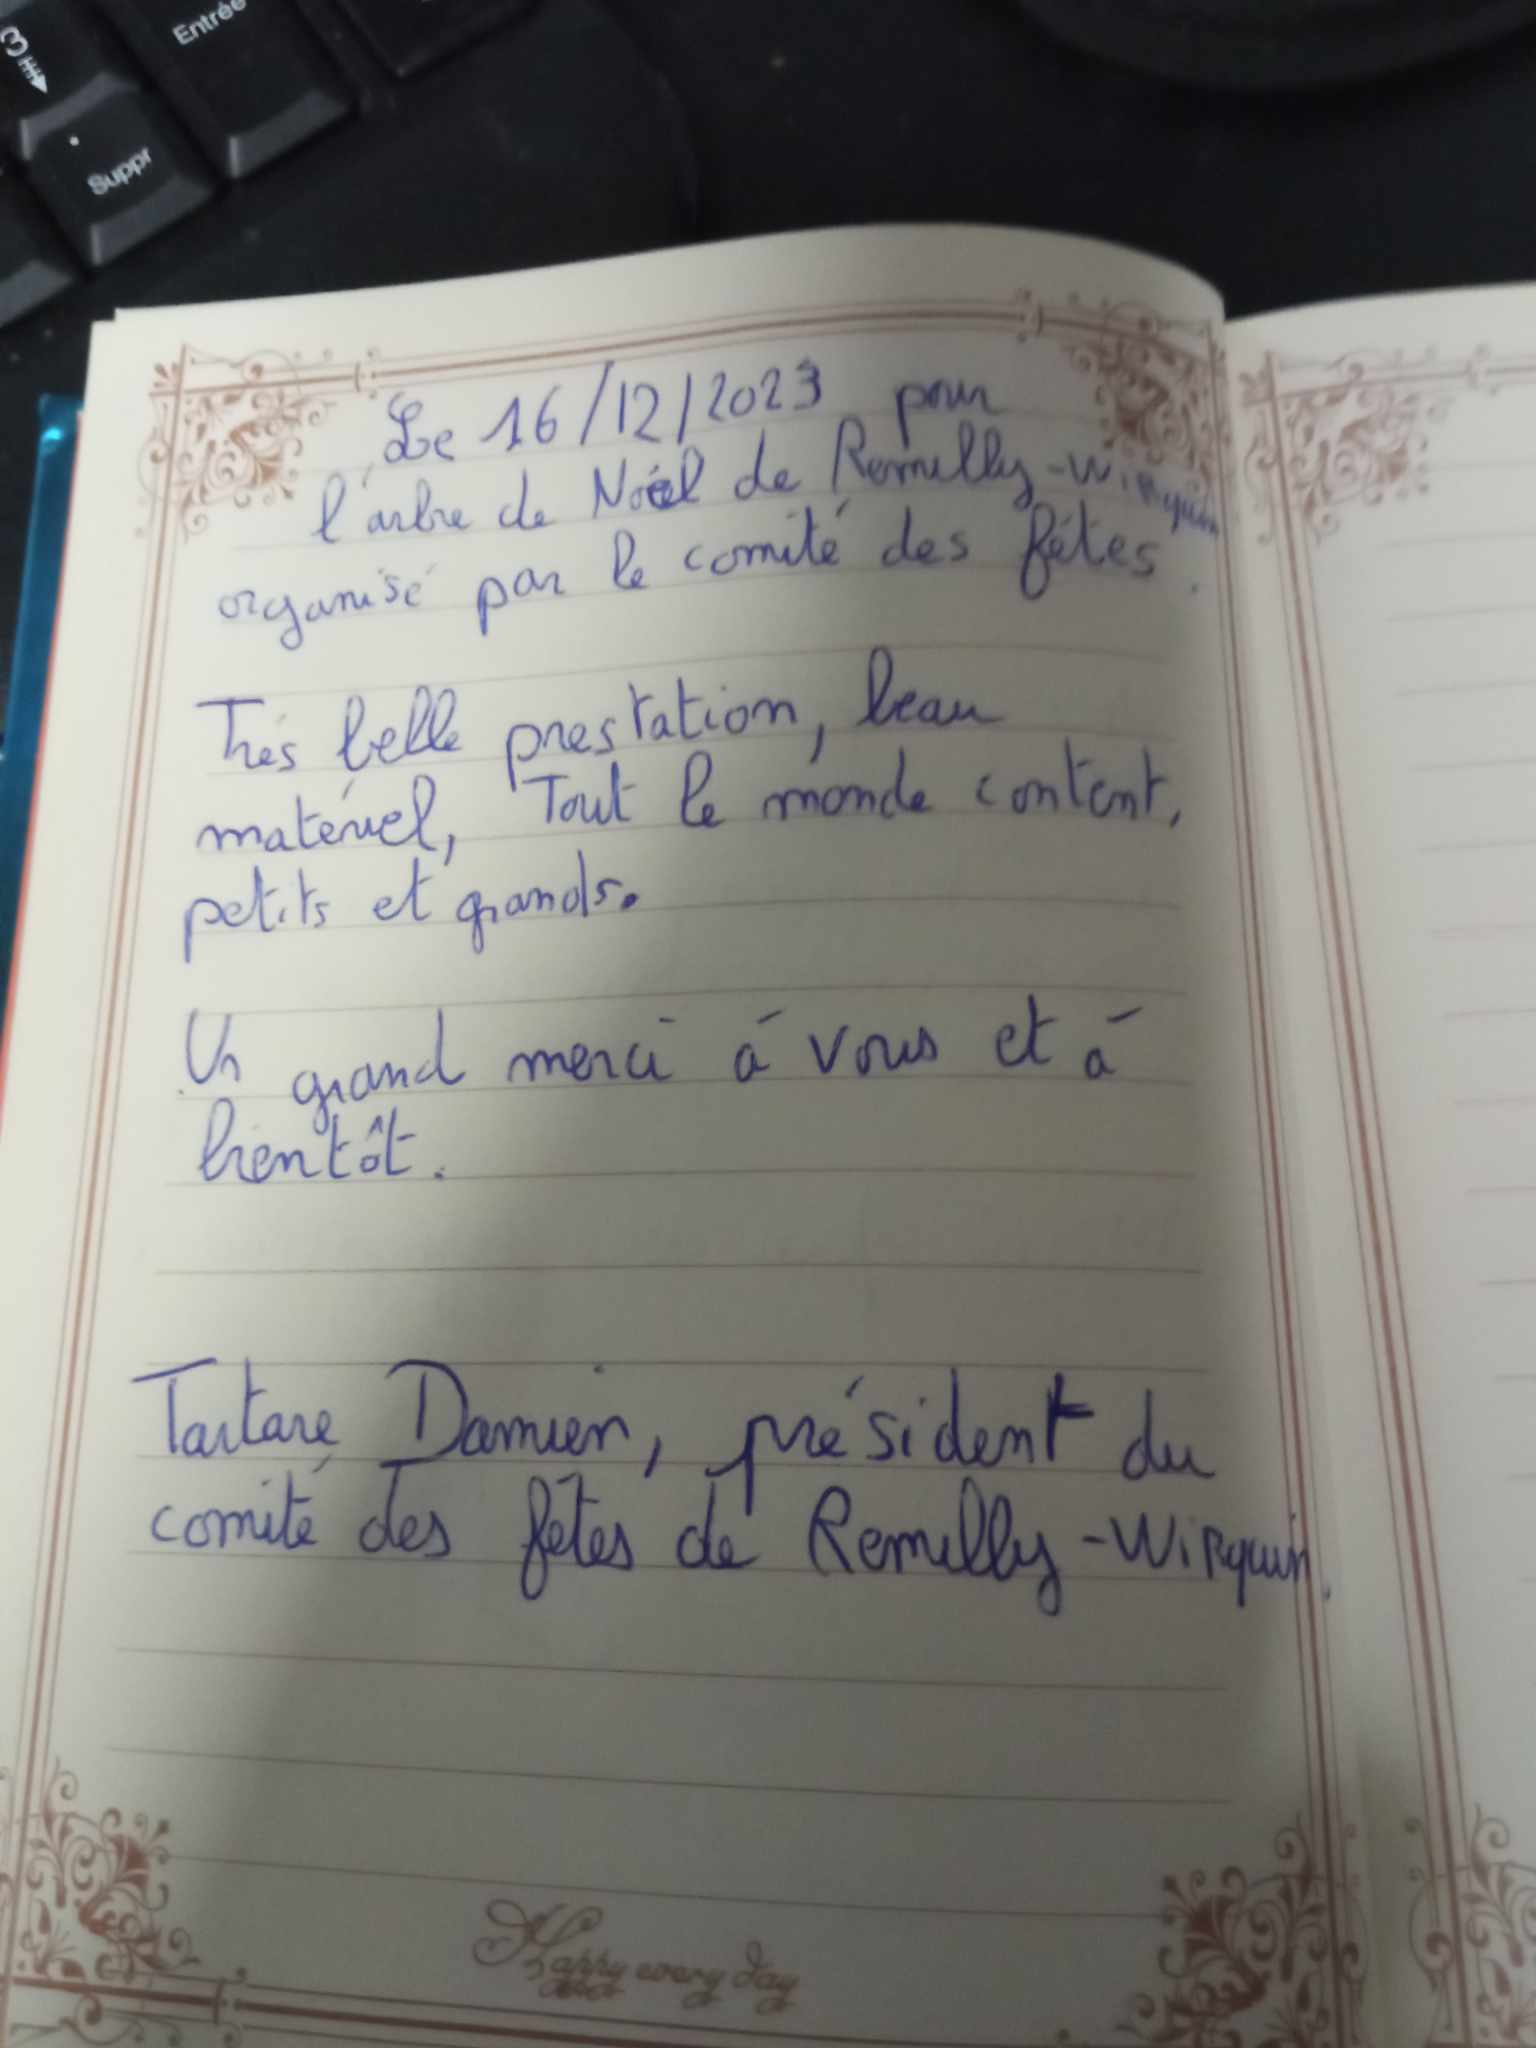 3
Entrée
.
Suppr
Le 16/12/2023 pour
l'arbre de Noël de Remilly-Wirquin
organisé par le comité des fêtes.
Trés belle prestation, beau
matériel, Tout le monde content,
petits et grands.
Un grand merci á vous et á
bientôt.
Tartare Damien, président du
comité des fêtes de Remilly-Wirquin.
Happy every day